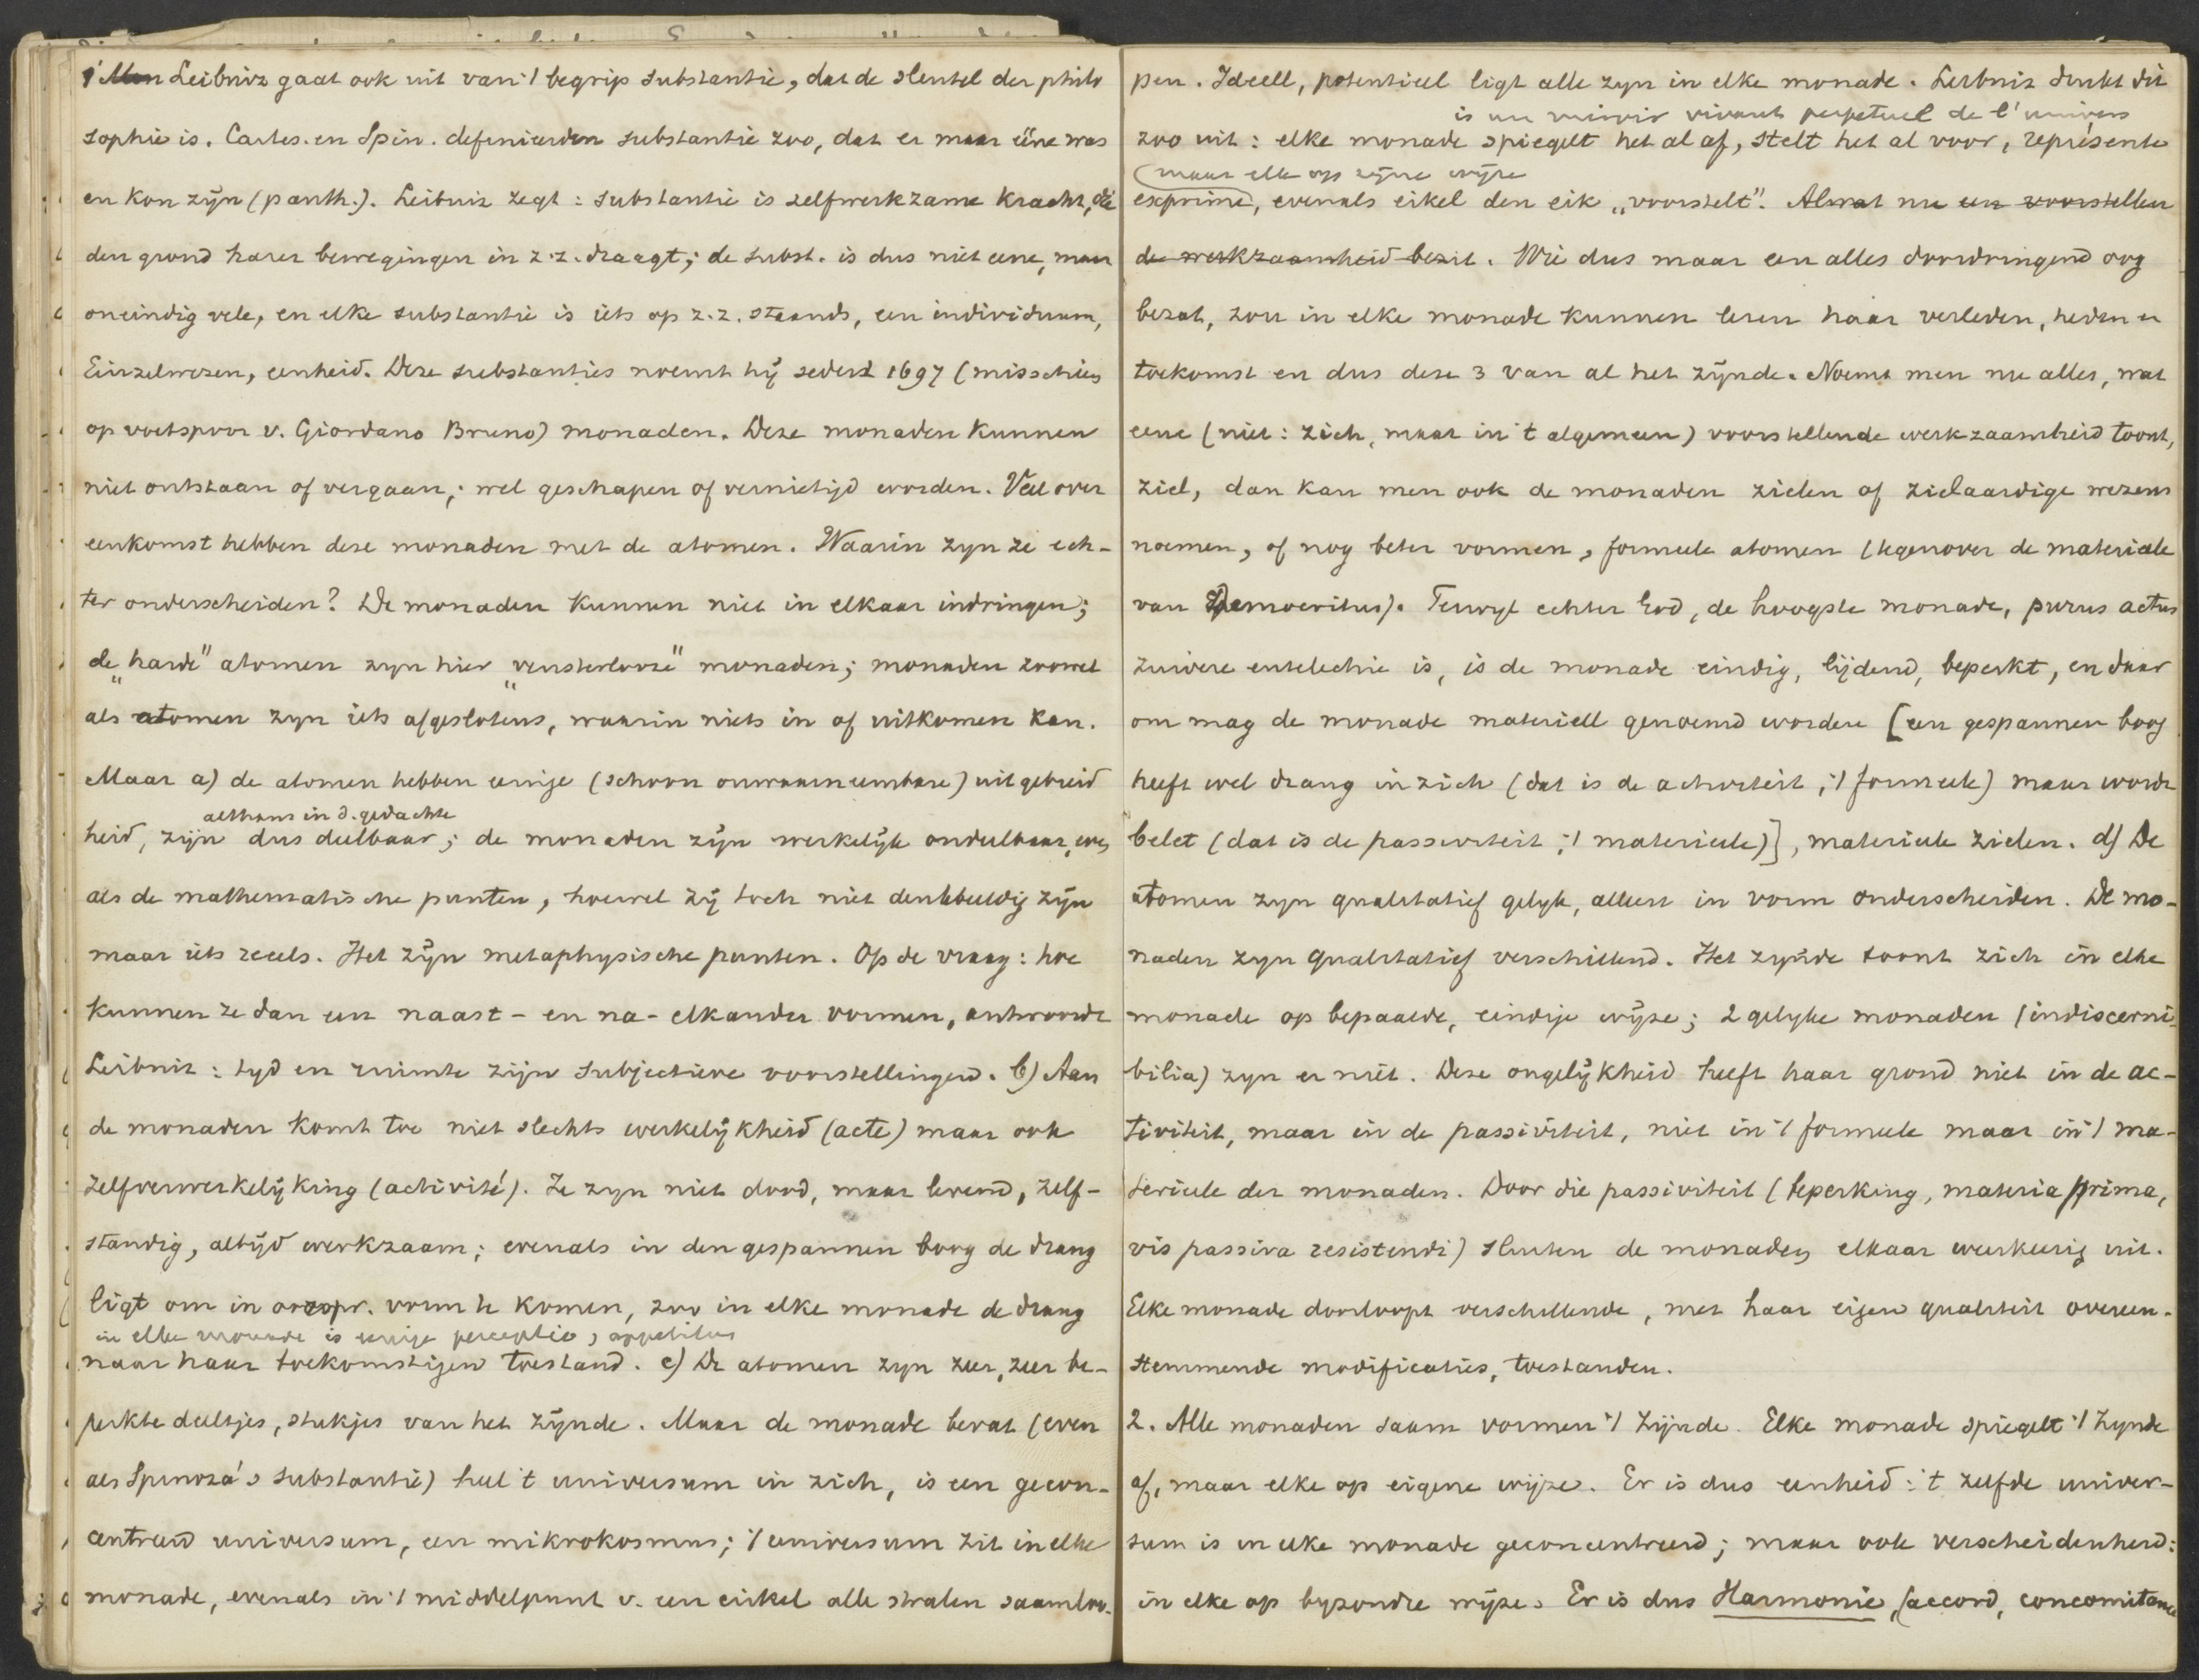 1 Men Leibniz gaat ook uit van 't begrip substantie, dat de sleutel der philo
sophie is. Cartes. en Spin. definieerden substantie zoo, dat er maar ééne was
en kon zijn (panth.). Leibniz zegt: substantie is zelfwerkzame Kracht, die
den grond harer bewegingen in z.z. draagt; de subst. is dus niet eene, maar
oneindig vele, en elke substantie is iets op z.z. staands, een individuum,
Einzelwesen, eenheid. Deze substanties noemt hij sedert 1697 (misschien
op voetspoor v. Giordano Bruno) monaden. Deze monaden kunnen
niet ontstaan of vergaan; wel geschapen of vernietigd worden. Veel over
eenkomst hebben deze monaden met de atomen. Waarin zyn ze ech-
ter onderscheiden? De monaden kunnen niet in elkaar indringen;
de „harde" atomen zyn hier „vensterlooze" monaden; monaden zoowel
als atomen zyn iets afgeslotens, waarin niets in of uitkomen kan.
Maar a) de atomen hebben eenige (schoon onwaarneembare) uitgebreid
althans in d. gedachte
heid, zijn dus deelbaar; de monaden zijn werkelijk ondeelbaar, even
als de mathematische punten, hoewel zij toch niet denkbeeldig zijn
maar iets reeels. Het zijn metaphysische punten. Op de vraag: hoe
kunnen ze dan een naast- en na-elkander vormen, antwoordt
Leibniz: tyd en ruimte zijn subjectieve voorstellingen. b) Aan
de monaden komt toe niet slechts werkelijkheid (acte) maar ook
zelfverwerkelijking (activité). Ze zyn niet dood, maar levend, zelf-
standig, altijd werkzaam; evenals in den gespannen boog de drang
ligt om in oorspr. vorm te komen, zoo in elke monade de drang
in elke monade is eenige perceptio, appetitus
naar haar toekomstigen toestand. c) De atomen zyn zeer, zeer be-
perkte deeltjes, stukjes van het zijnde. Maar de monade bevat (even
als Spinoza's substantie) heel 't universum in zich, is een gecon-
centreerd universum, een mikrokosmus; 't universum zit in elke
monade, evenals in 't middelpunt v. een cirkel alle stralen saamloo-
pen. Ideell, potentieel ligt alle zyn in elke monade. Leibniz drukt dit
is un miroir vivant perpetuel de l'univers
zoo uit: elke monade spiegelt het al af, stelt het al voor, représente
(maar elke op zijne wijze
exprime, evenals eikel den eik „voorstelt". Alwat nu een voorstellen
de werkzaamheid bezit. Wie dus maar een alles doordringend oog
bezat, zou in elke monade kunnen lezen haar verleden, heden en
toekomst en dus deze 3 van al het zijnde. Noemt men nu alles, wat
eene (niet: zich, maar in 't algemeen) voorstellende werkzaamheid toont,
ziel, dan kan men ook de monaden zielen of zielaardige wezens
noemen, of nog beter vormen, formeele atomen (tegenover de materiëele
van Democritus). Terwyl echter God, de hoogste monade, purus actus
zuivere entelechie is, is de monade eindig, lijdend, beperkt, en daar
om mag de monade materiell genoemd worden [een gespannen boog
heeft wel drang in zich (dat is de activiteit, 't formeele) maar wordt
belet (dat is de passiviteit, 't materieele)], materieele zielen. d) De
atomen zyn qualitatief gelyk, alleen in vorm onderscheiden. De mo-
naden zyn qualitatief verschillend. Het zijnde toont zich in elke
monade op bepaalde, eindige wijze; 2 gelyke monaden (indiscerni-
bilia) zyn er niet. Deze ongelijkheid heeft haar grond niet in de ac-
tiviteit, maar in de passiviteit, niet in 't formeele maar in 't ma-
terieele der monaden. Door die passiviteit (beperking, materia prima,
vis passiva resistendi) sluiten de monaden elkaar wederkeerig uit.
Elke monade doorloopt verschillende, met haar eigen qualiteit overeen-
stemmende modificaties, toestanden.
2. Alle monaden saam vormen 't Zijnde. Elke monade spiegelt 't Zynde
af, maar elke op eigene wijze. Er is dus eenheid: 't zelfde univer-
sum is in elke monade geconcentreerd; maar ook verscheidenheid:
in elke op byzondre wijze. Er is dus Harmonie, (accord, concomitance